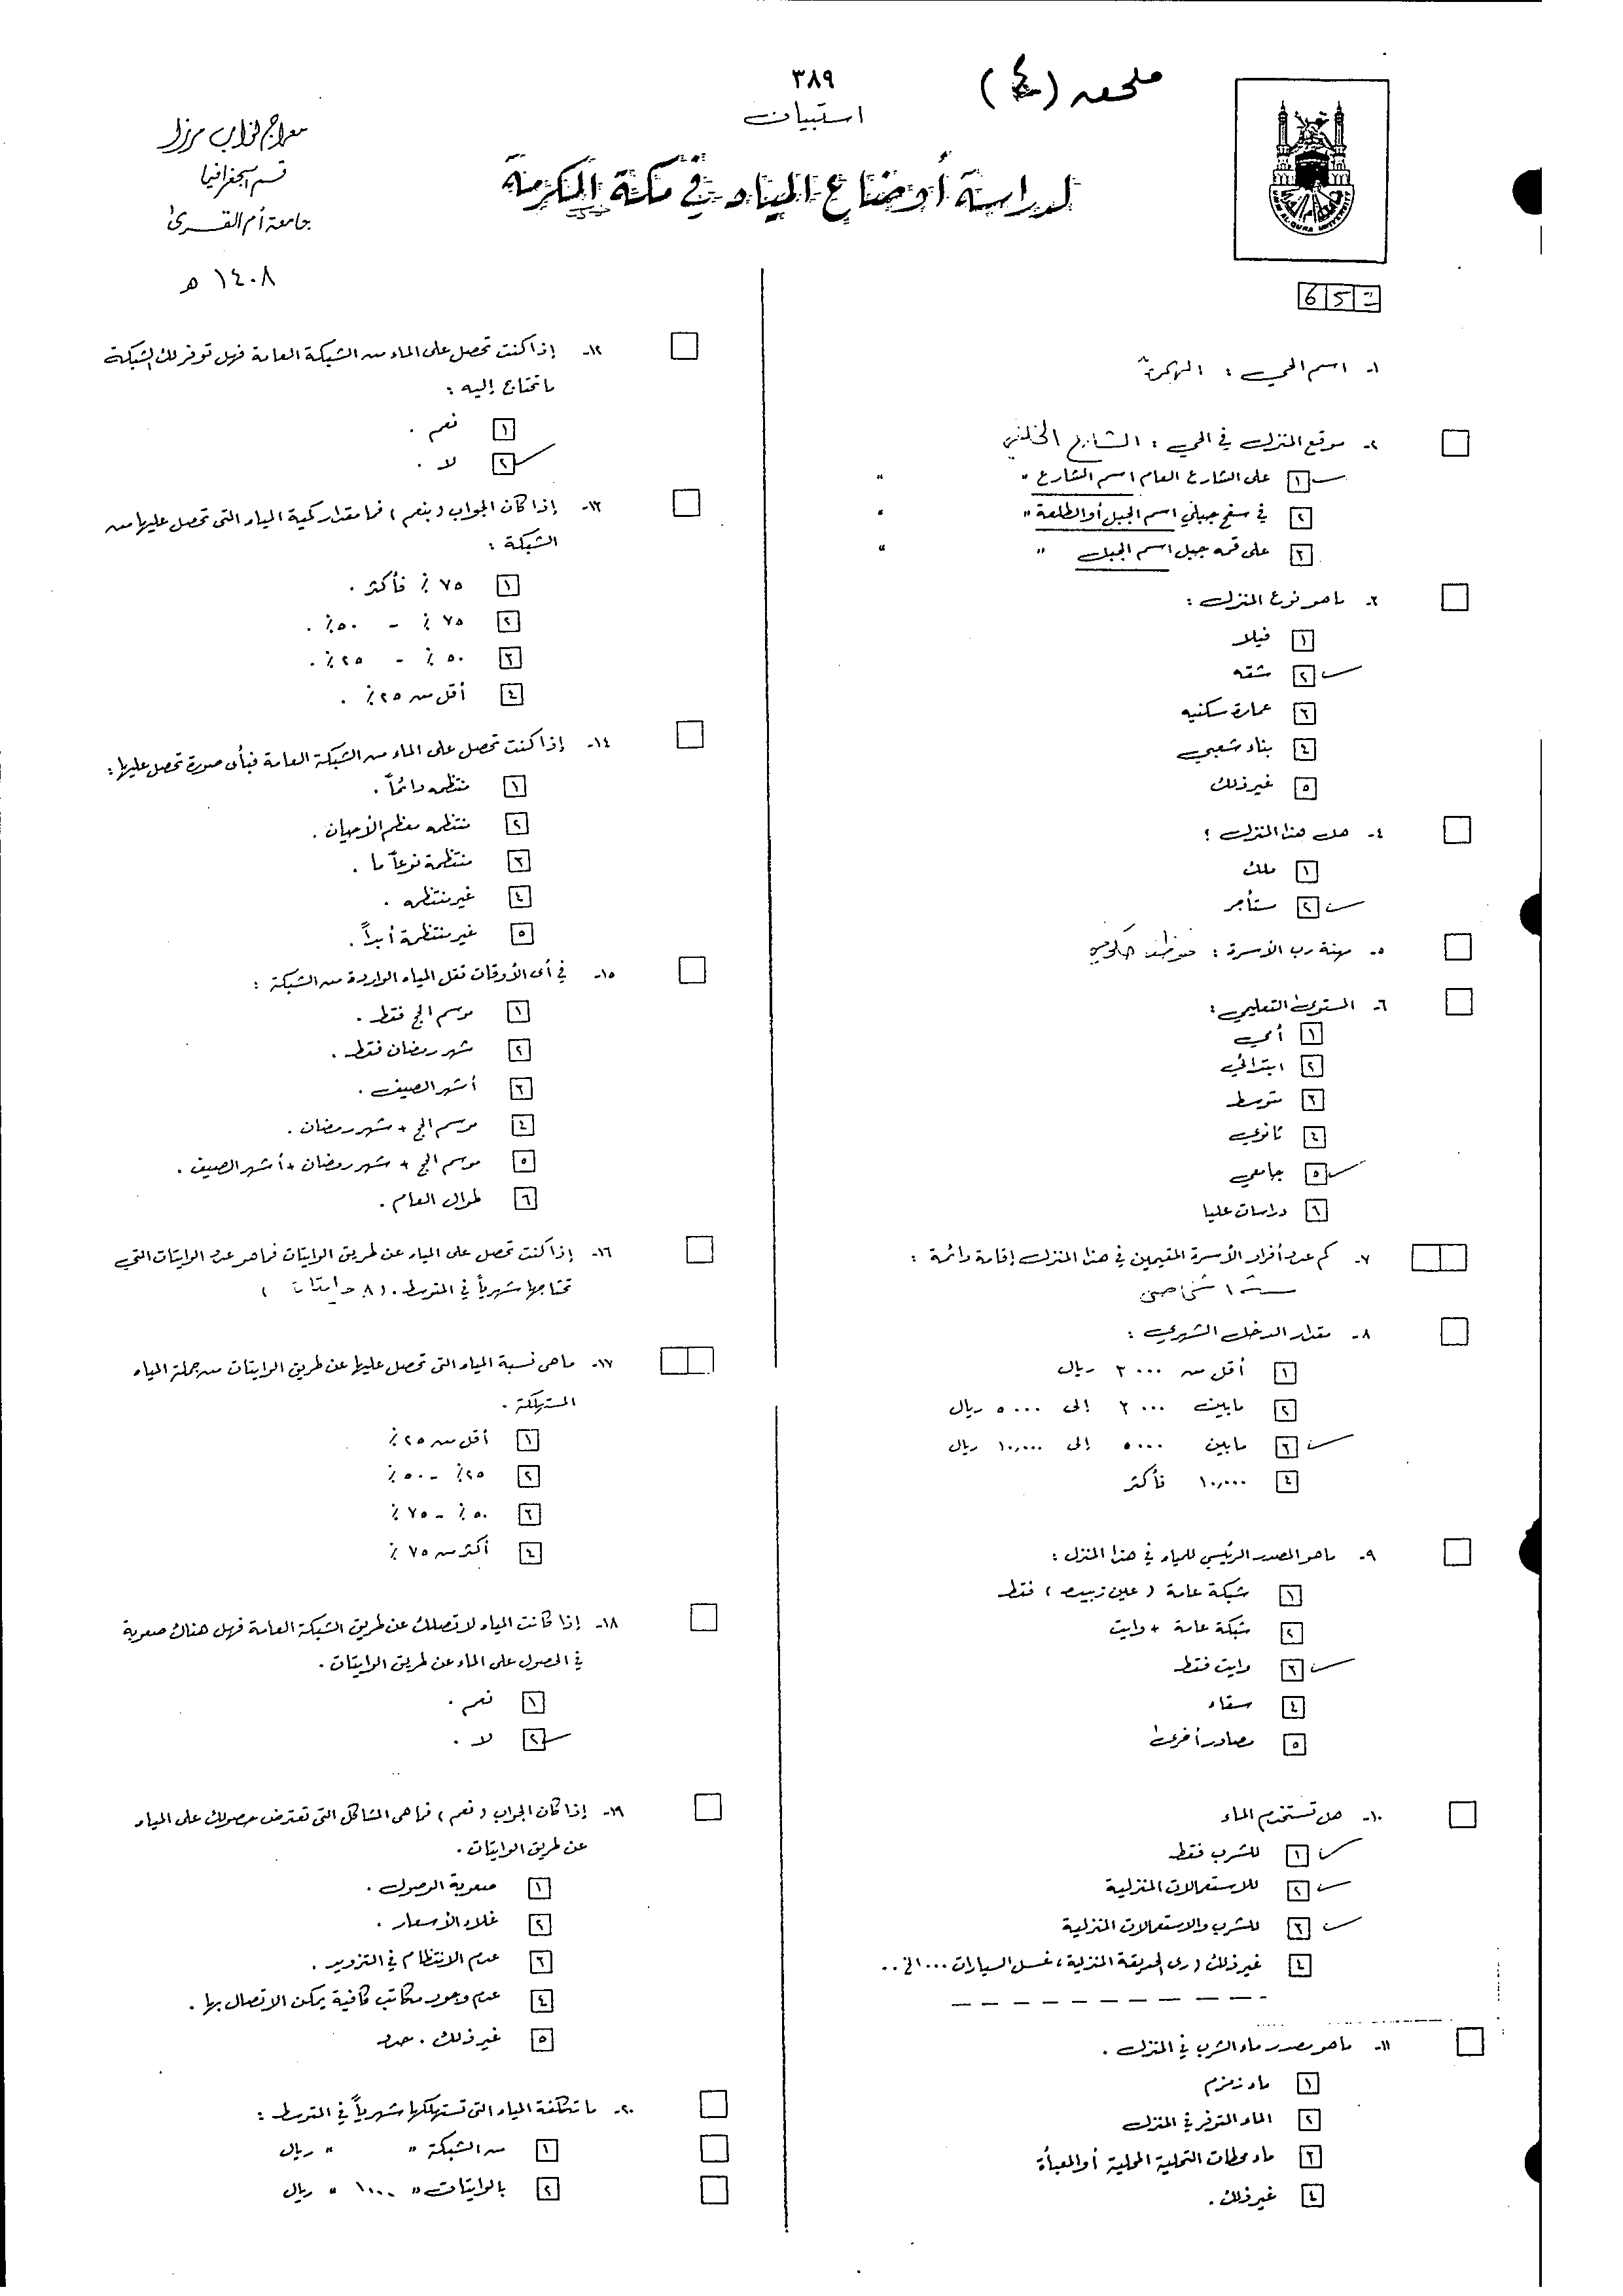 ٣٨٩
ملحق (٤)
استبيان
لدراسة أوضاع المياه في مكة المكرمة
معراج نواب مرزا
قسم الجغرافيا
جامعة أم القرى
١٤٠٨ هـ
UMM AL-QURA UNIVERSITY
١- اسم الحي :
٢- موقع المنزل في الحي : الشارع الخلفي
١ على الشارع العام اسم الشارع " "
٢ في سفح جبلي اسم الجبل أو الطلعة " "
٣ على قمة جبل اسم الجبل " "
٣- ما هو نوع المنزل :
١ فيلا
٢ شقه
٣ عمارة سكنيه
٤ بناء شعبي
٥ غير ذلك
٤- هل هذا المنزل ؟
١ ملك
٢ مستأجر
٥- مهنة رب الأسرة : موظف حكومي
٦- المستوى التعليمي :
١ أمي
٢ ابتدائي
٣ متوسط
٤ ثانوي
٥ جامعي
٦ دراسات عليا
٧- كم عدد أفراد الأسرة المقيمين في هذا المنزل إقامة دائمة :
ستة أشخاص
٨- مقدار الدخل الشهري :
١ أقل من ٣٠٠٠ ريال
٢ مابين ٣٠٠٠ إلى ٥٠٠٠ ريال
٣ مابين ٥٠٠٠ إلى ١٠,٠٠٠ ريال
٤ ١٠,٠٠٠ فأكثر
٩- ماهو المصدر الرئيسي للمياه في هذا المنزل :
١ شبكة عامة ( عين زبيده ) فقط
٢ شبكة عامة + وايت
٣ وايت فقط
٤ سقاء
٥ مصادر أخرى
١٠- هل تستخدم الماء
١ للشرب فقط
٢ للاستعمالات المنزلية
٣ للشرب والاستعمالات المنزلية
٤ غير ذلك ( رى الحديقة المنزلية ، غسل السيارات ... الخ ..
١١- ماهو مصدر ماء الشرب في المنزل .
١ ماء زمزم
٢ الماء المتوفر في المنزل
٣ ماء محطات التحلية المحلية أو المعبأة
٤ غير ذلك .
١٢- إذا كنت تحصل على الماء من الشبكة العامة فهل توفر لك الشبكة
ما تحتاج إليه :
١ نعم .
٢ لا .
١٣- إذا كان الجواب ( بنعم ) فما مقدار كمية المياه التى تحصل عليها من
الشبكة :
١ ٧٥ ٪ فأكثر .
٢ ٧٥ ٪ - ٥٠ ٪ .
٣ ٥٠ ٪ - ٢٥ ٪ .
٤ أقل من ٢٥ ٪ .
١٤- إذا كنت تحصل على الماء من الشبكة العامة فبأى صورة تحصل عليها :
١ منتظمه دائماً .
٢ منتظمه معظم الأحيان .
٣ منتظمة نوعاً ما .
٤ غير منتظمه .
٥ غير منتظمة أبداً .
١٥- في أى الأوقات تقل المياه الواردة من الشبكة :
١ موسم الحج فقط .
٢ شهر رمضان فقط .
٣ أشهر الصيف .
٤ موسم الحج + شهر رمضان .
٥ موسم الحج + شهر رمضان + أشهر الصيف .
٦ طوال العام .
١٦- إذا كنت تحصل على المياه عن طريق الوايتات فماهو عدد الوايتات التي
تحتاجها شهرياً في المتوسط . ( ٨ وايتات )
١٧- ماهى نسبة المياه التى تحصل عليها عن طريق الوايتات من جملة المياه
المستهلكة .
١ أقل من ٢٥ ٪
٢ ٢٥ ٪ - ٥٠ ٪
٣ ٥٠ ٪ - ٧٥ ٪
٤ أكثر من ٧٥ ٪
١٨- إذا كانت المياه لا تصلك عن طريق الشبكة العامة فهل هناك صعوبة
في الحصول على الماء عن طريق الوايتات .
١ نعم .
٢ لا .
١٩- إذا كان الجواب ( نعم ) فما هى المشاكل التى تعترض حصولك على المياه
عن طريق الوايتات .
١ صعوبة الوصول .
٢ غلاء الأسعار .
٣ عدم الانتظام في التزويد .
٤ عدم وجود مكاتب كافية يمكن الاتصال بها .
٥ غير ذلك . حدد
٢٠- ما تكلفة المياه التى تستهلكها شهرياً في المتوسط :
١ من الشبكة " " ريال
٢ بالوايتات " ١٠٠٠ " ريال